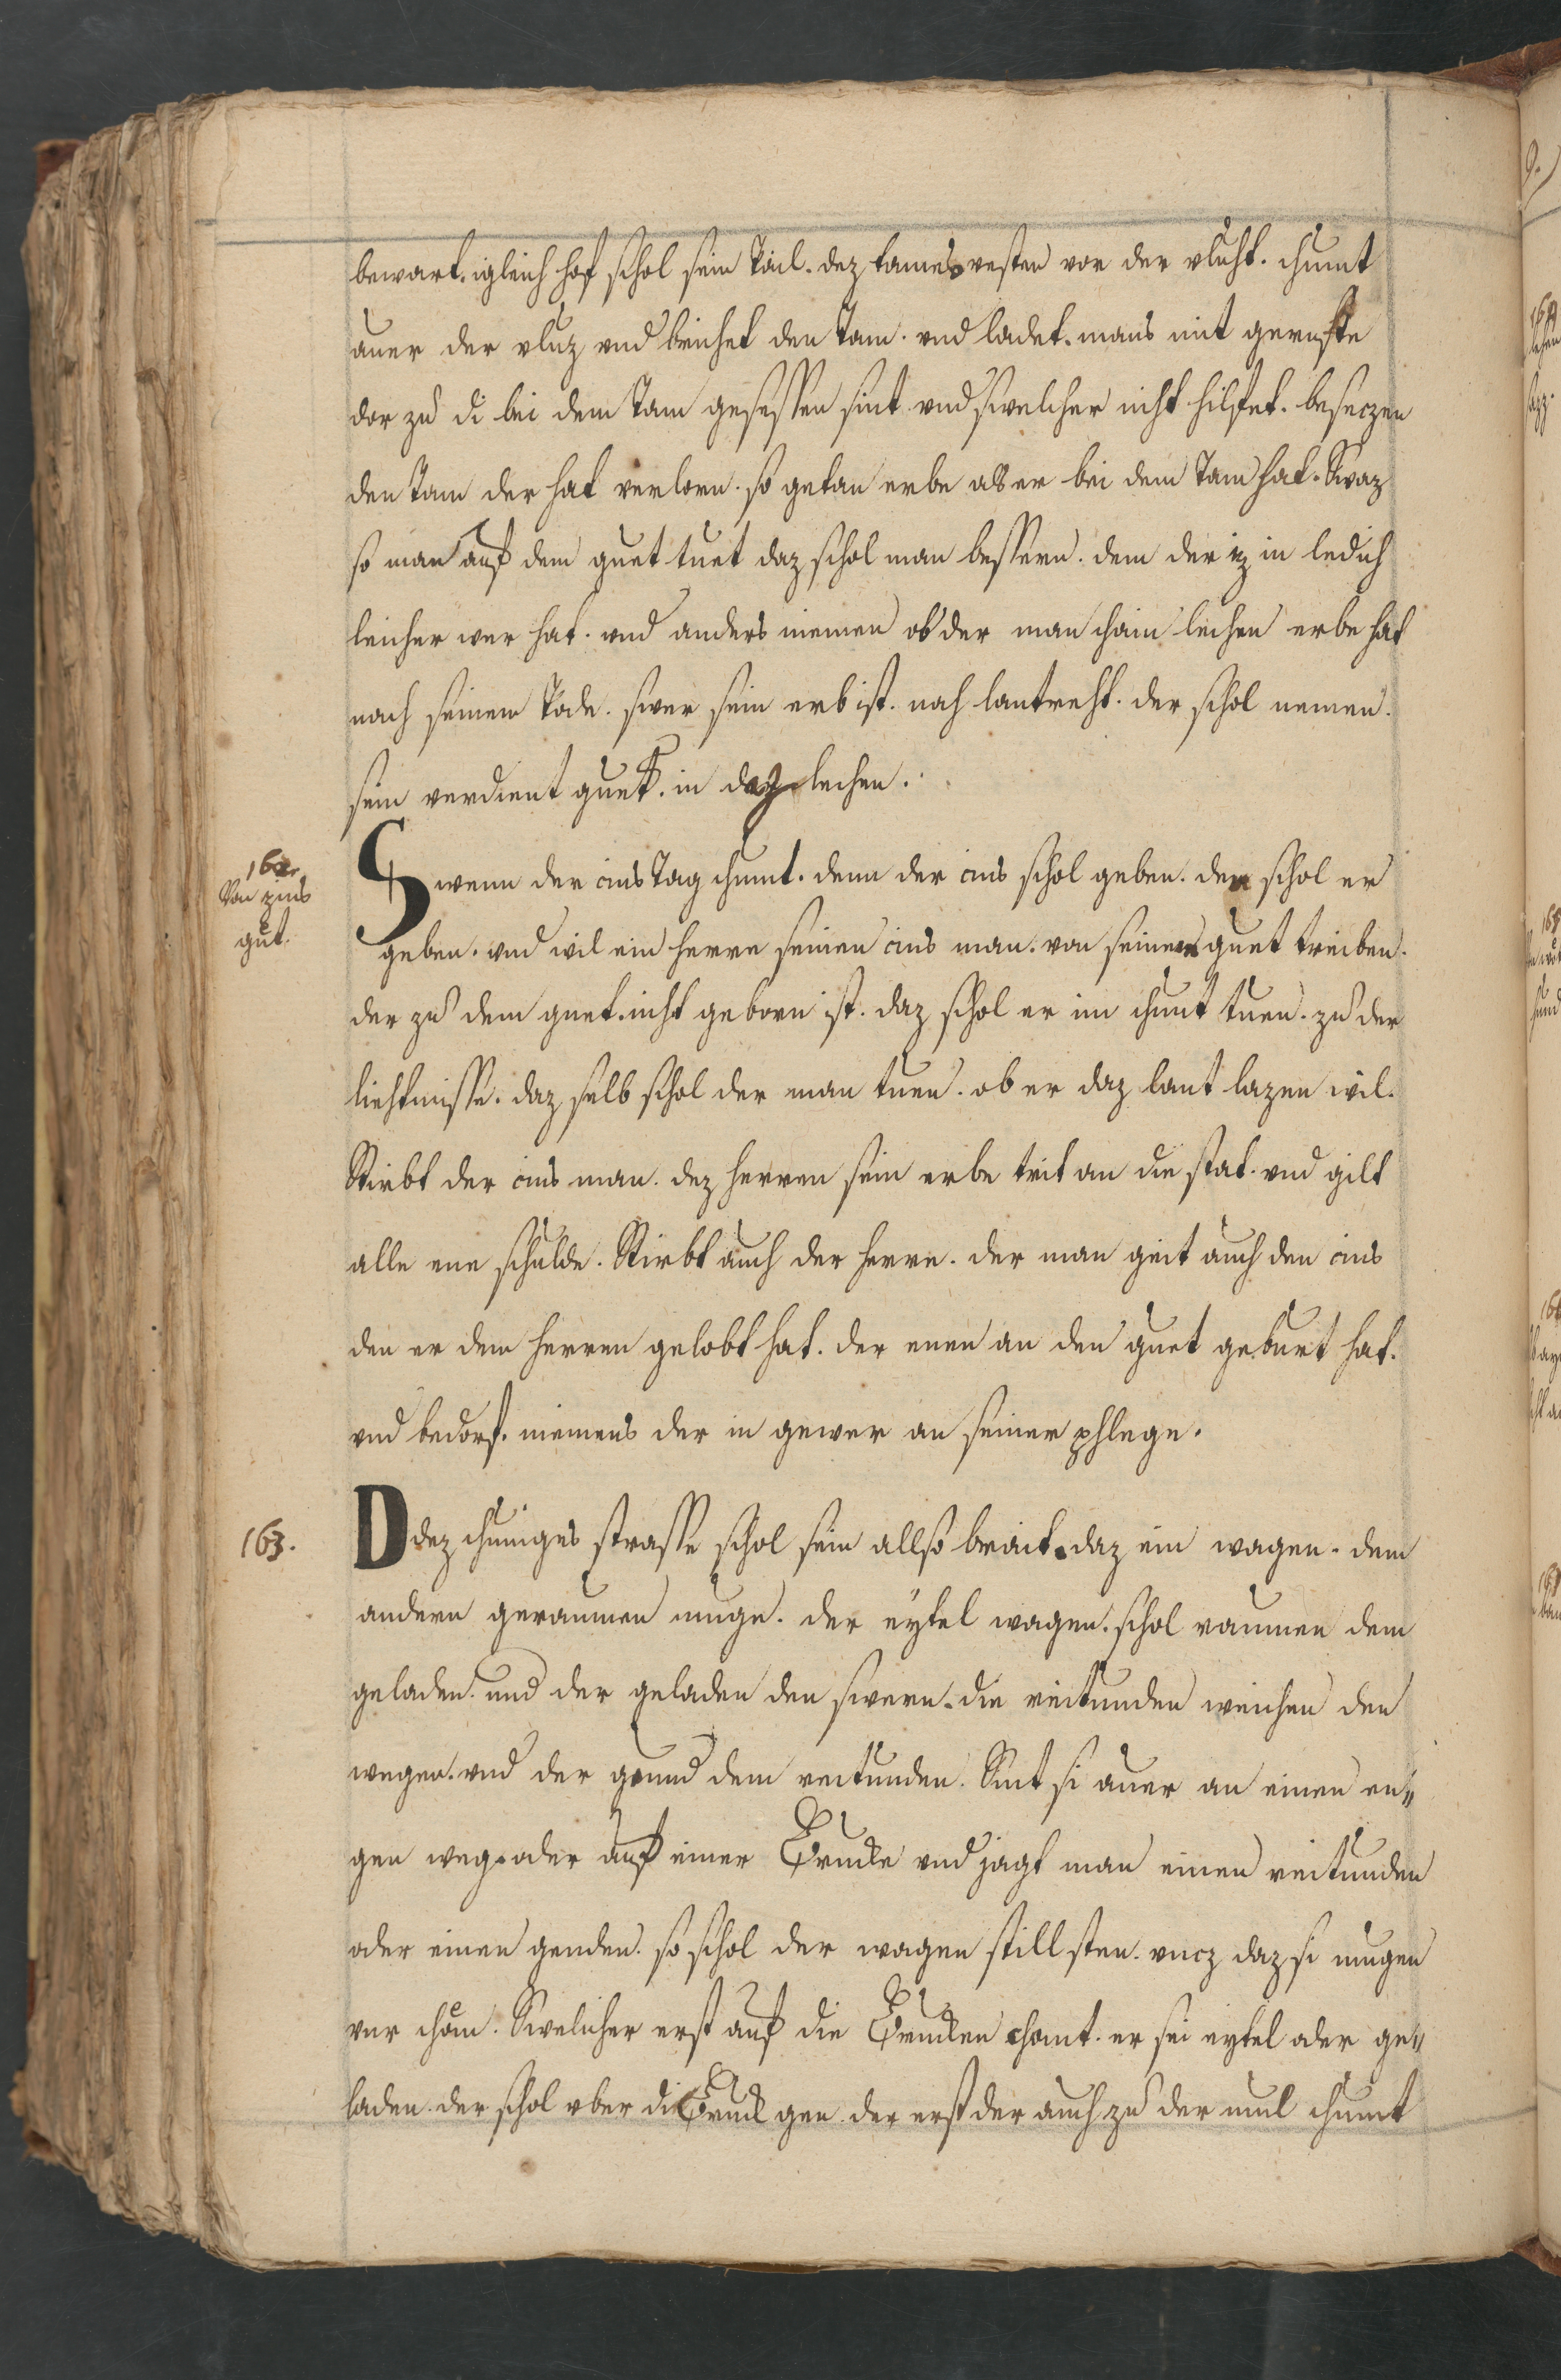 bewart. igleich hof schol sein Tail. dez tames vesten vor der vluht. chumt
auer der vluz vnd brichet den Tam. vnd ladet. mans mit gerufte
dar zu di bei dem Tam gesessen sint vnd swelcher niht hilfet. beseczen
den Tam der hat verlorn. so getan erbe als er bei dem Tam hat. Swaz
so man auf dem guet tuet daz schol man bessern. dem der iz in ledich
leicher wer hat. vnd anders niemen ob der man chain lechen erbe hat
nach seinem Tode. swer sein erb ist. nah lantreht. der schol nemen.
sein verdient guet. in daz lechen.
162.
Von zins
gut.
Swenn der cins Tag chumt. dem der cins schol geben. den schol er
geben. vnd wil ein herre seinen cins man. von seinem guet treiben.
der zu dem guet niht geborn ist. daz schol er im chunt tuen. zu der
liehtmisse. daz selb schol der man tuen. ob er daz lant lazen wil.
Stirbt der cins man. dez herren sein erbe trit an die stat. vnd gilt
alle ene schulde. Stirbt auch der herre. der man geit auch den cins
den er dem herren gelobt hat. der enen an den guet geburt hat.
vnd bedorf. niemens der in gewer an seiner phlege.
163.
Ddez chuniges strasse schol sein allso brait. daz ein wagen. dem
andern geraumen muge. der eytel wagen. schol raumen dem
geladen. und der geladen den swern. die reitunden weichen den
wegen. vnd der geund dem reitunden. Sint si auer an einen en„
gen weg. oder auf einer Brucke vnd jagt man einen reitunden
oder einen genden. so schol der wagen still sten. vncz daz si mugen
vur chom. Swelicher erst auf die Brucken chomt. er sei eytel oder ge„
laden. der schol vber di Bruck gen der erst der auch zu der mul chumt